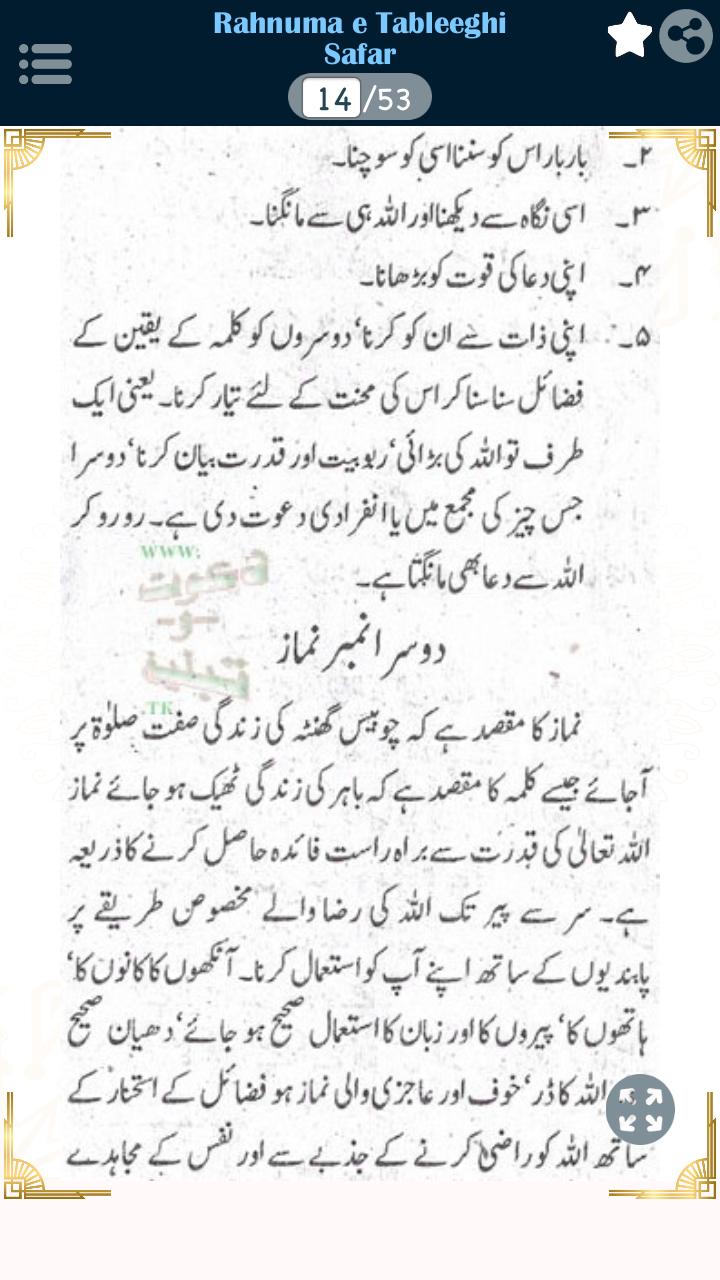 Rahnuma e Tableeghi
Safar
14/53
۲۔ بار بار اس کو سننا اسی کو سوچنا۔
۳۔ اسی نگاہ سے دیکھنا اور اللہ ہی سے مانگنا۔
۴۔ اپنی دعا کی قوت کو بڑھانا۔
۵۔ اپنی ذات سے ان کو کرنا‘ دوسروں کو کلمہ کے یقین کے
فضائل سنا سنا کر اس کی محنت کے لئے تیار کرنا۔ یعنی ایک
طرف تو اللہ کی بڑائی‘ ربوبیت اور قدرت بیان کرنا‘ دوسرا
جس چیز کی مجمع میں یا انفرادی دعوت دی ہے۔ رو رو کر
اللہ سے دعا بھی مانگنا ہے۔
WWW.
دعوت
-و-
تبلیغ
.TK
دوسرا نمبر نماز
نماز کا مقصد ہے کہ چوبیس گھنٹہ کی زندگی صفت صلوٰۃ پر
آجائے جیسے کلمہ کا مقصد ہے کہ باہر کی زندگی ٹھیک ہو جائے نماز
اللہ تعالیٰ کی قدرت سے براہ راست فائدہ حاصل کرنے کا ذریعہ
ہے۔ سر سے پیر تک اللہ کی رضا والے مخصوص طریقے پر
پابندیوں کے ساتھ اپنے آپ کو استعمال کرنا۔ آنکھوں کا کانوں کا‘
ہاتھوں کا‘ پیروں کا اور زبان کا استعمال صحیح ہو جائے‘ دھیان صحیح
اللہ کا ڈر‘ خوف اور عاجزی والی نماز ہو فضائل کے استحضار کے
ساتھ اللہ کو راضی کرنے کے جذبے سے اور نفس کے مجاہدے